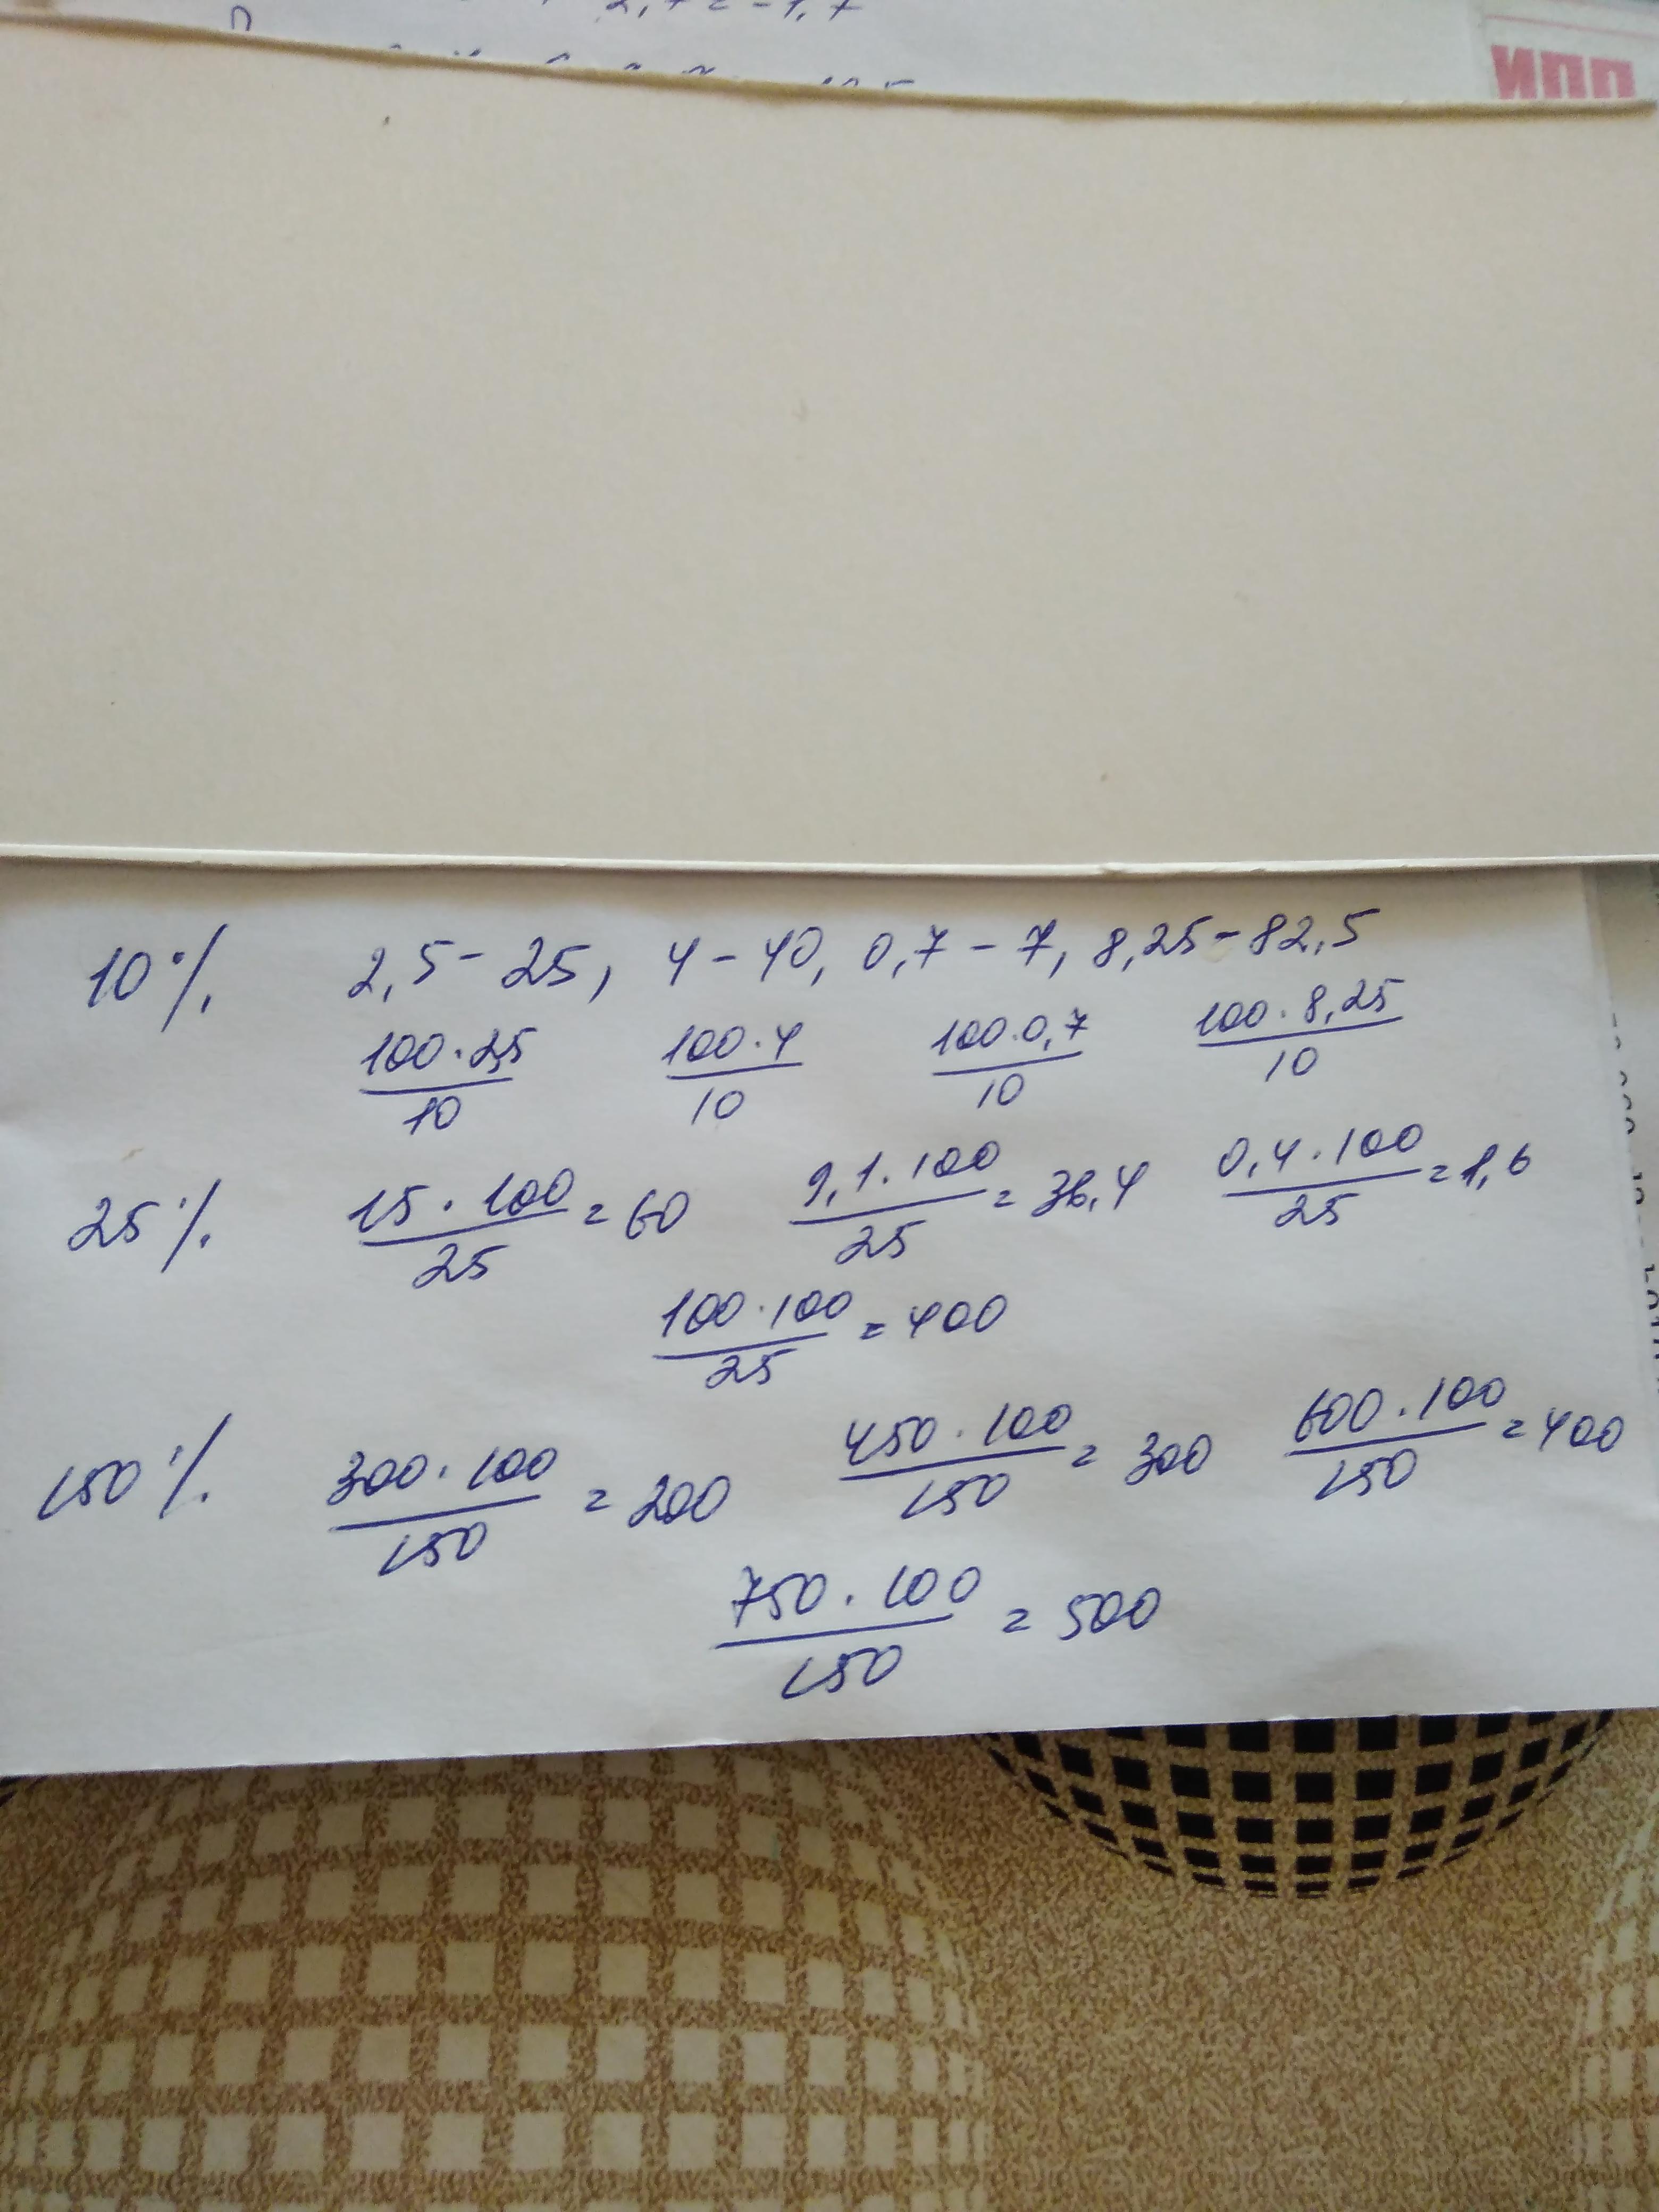 ИПП
10% 2,5 - 25, 4 - 40, 0,7 - 7, 8,25 - 82,5
100·2,5/10 100·4/10 100·0,7/10 100·8,25/10
25% 15·100/25 = 60 9,1·100/25 = 36,4 0,4·100/25 = 1,6
100·100/25 = 400
150% 300·100/150 = 200 450·100/150 = 300 600·100/150 = 400
750·100/150 = 500